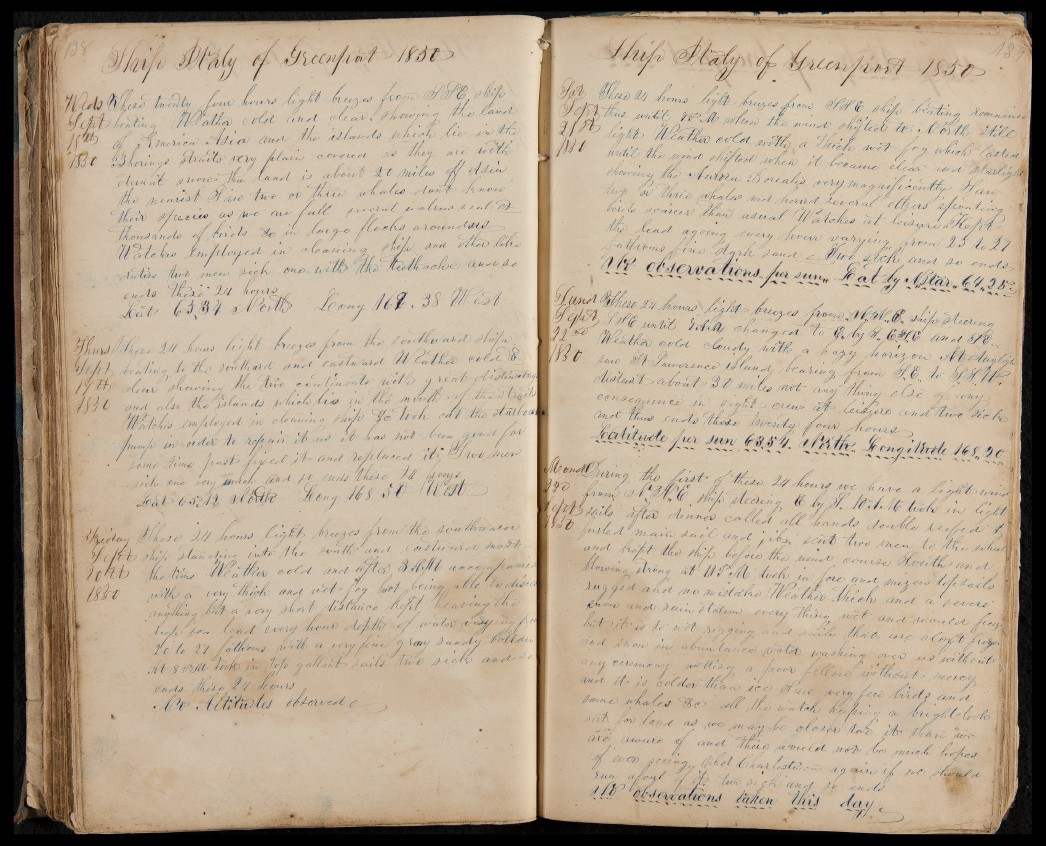 138
Ship Italy of Greenport 1850
Weds These twenty four hours light breezes from SSE ship
Sept beating Weather cold and clear showing the land
18th of America & Asia and the islands which lie in the
1850 Bherings Straits very plain covered as they are with
snow the land is about 20 miles off
the nearest Saw two or three whales dont know
their species as we are full several walrus seal &
thousands of birds &c in large flocks around us
Watches Employed in cleaning ship and other like
duties two men sick one with the teethache and so
ends these 24 hours
Lat 65,34 North Long 168.38 West
Thurs These 24 hours light breezes from the southward ship
Sept beating to the southard and eastward Weather cold &
19th clear showing the two continents with great distinctness
1850 and also the islands which lie in the mouth of the straits
Watches employed in cleaning ship &c took out the starboard
pump in order to repair it as it has not been good for
some time past fixed it and replaced it Two men
sick one very much and so ends these 24 hours
Lat 65.12 North Long 168 30 West
Friday These 24 hours light breezes from the southward
Sept ship standing into the south and eastward most
20th the time Weather cold and after 3 AM accompanied
1850 with a very thick and wet fog not being able to discern
anything but a very short distance kept heaving the
deep sea lead every hour depths of water varying from
20 to 27 fathoms with a very fine gray sandy bottom
At 8 took in top gallant sails two sick and so
ends these 24 hours
No Altitudes observed
139
Ship Italy of Greenport 1850
Sat These 24 hours light breezes from SSE ship beating remained
Sept thus until when the wind shifted to North still
21st light Weather cold with a thick wet fog which lasted
1850 until the wind shifted when it became clear and starlight
showing the Aurora Borealis very magnificently Saw
two or three whales and heard several others spouting
birds scarcer than usual Watches at leisure Kept
the lead agoing every hour varying from 25 to 27
fathoms fine dark sand Two sick and so ends
No observations per sun Lat by Star 64,25
Sund These 24 hours light breezes from N.N.E. ship steering
Sept SSE until changed to E.by S. ESE and SE
22nd Weather cold cloudy with a hazy horizon At daylight
1850 saw St Lawrence Island bearing from S.E. to S.S.W.
distant about 30 miles not any thing else of any
consequence in sight crew at leisure and two sick
and thus ends these twenty four hours
Latitude per sun 63.54 North Longitude 168.20
Mond During the first of these 24 hours we have a light wind
23d from N.N.E ship steering E by S. took in light
Sept sails after dinner called all hands double reefed &
1850 furled main sail and jib sent two men to the wheel
and kept the ship before the wind course South and
blowing strong at took in fore and mizen topsails
rugged and no mistake Weather thick and a severe
snow and rain storm every thing wet and would freeze
but it is so wet rigging and sails that are aloft
and snow in abundance water washing over us without
any ceremony wetting a poor fellow without mercy
and it is colder than ice Saw very few birds and
some whales &c all the watch keeping a bright look
out for land as we may be closer to it than we
are aware of and there would not be much hopes
of ever seeing Old Charlestown again if we should
run afoul of it two sick and so ends
No observations taken this day